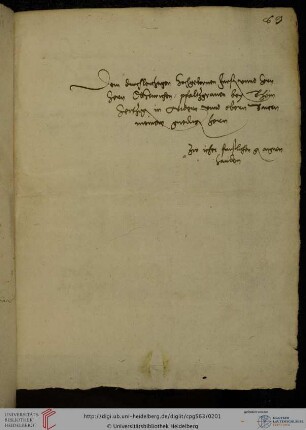 69
Dem durchleuchtigen hochgebornen fursten und hern
hern Ottheinrichen pfaltzgraven bey Rhin
hertzog in Nidern und obern Bayern
meinem gnedigen hern
Zu irer furstlichen g. eigen
handen
UNIVERSITÄTS-
BIBLIOTHEK
HEIDELBERG
http://digi.ub.uni-heidelberg.de/diglit/cpg563/0201
© Universitätsbibliothek Heidelberg